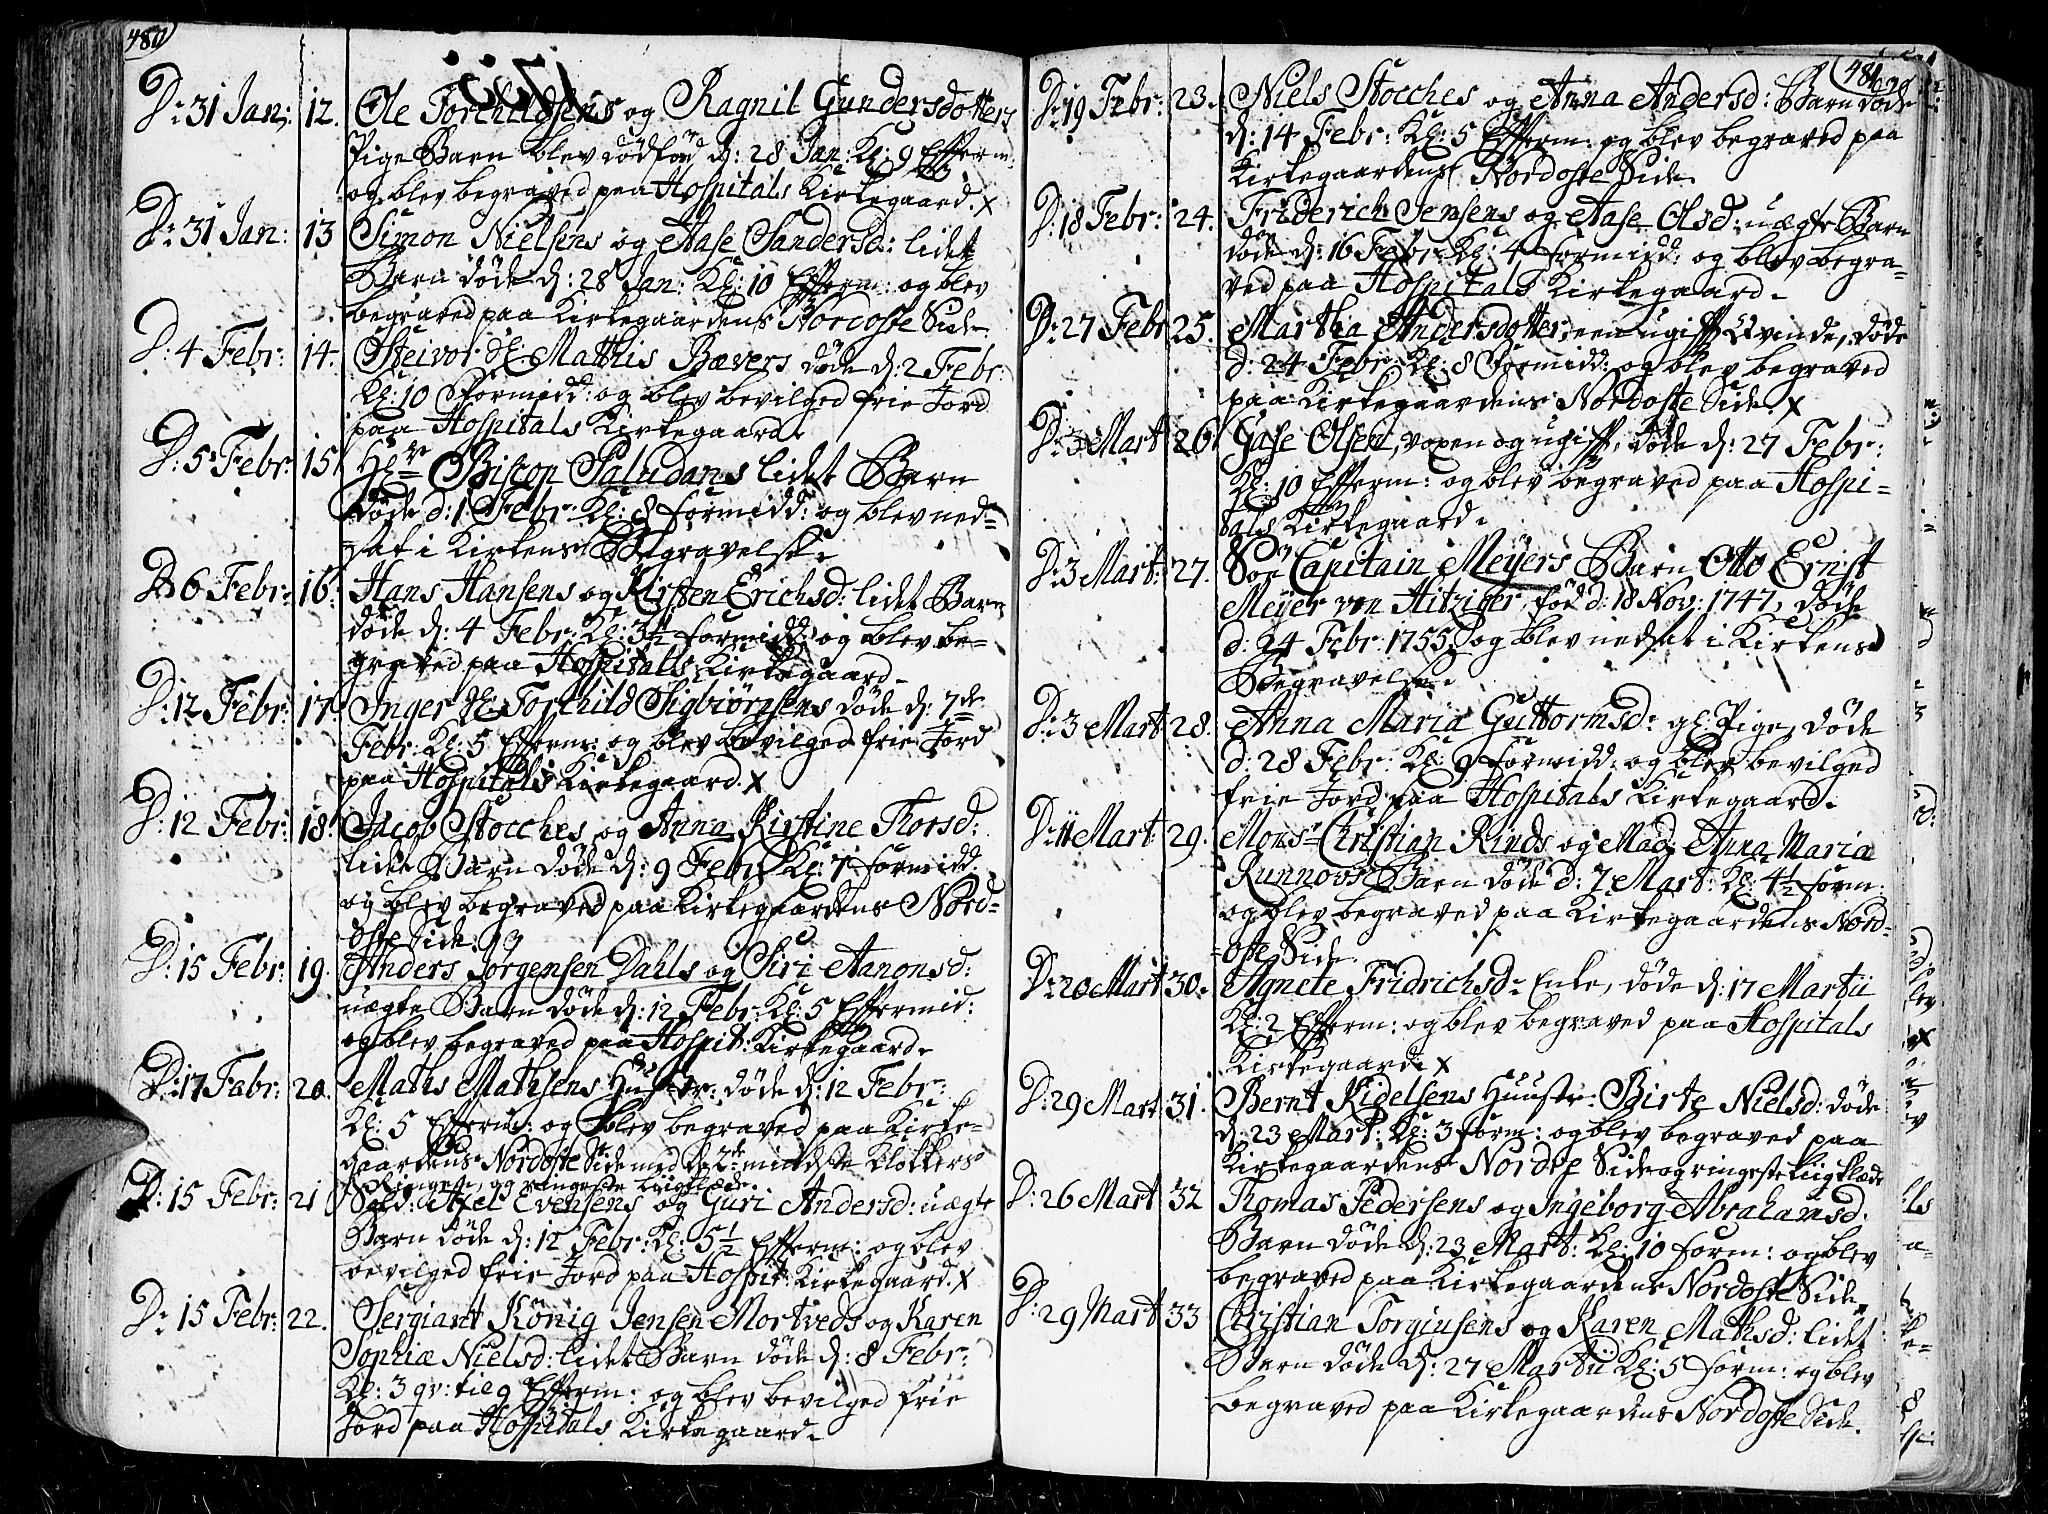 480
D: 31 Jan: 12. Ole Torchildsens og Ragnil Gundersdotters
Pige Barn blev dödföd d: 28 Jan: Kl: 9 Efferm:
og blev begraved paa Hospitals Kirkegaard. X
D: 31 Jan: 13 Simon Nielsens og Aase Sandersd: lidet
Barn döde d: 28 Jan: Kl: 10 Efferm: og blev
begraved paa Kirkegaardens Nordoste Side.
D: 4 Febr: 14. Steivor Matthis Bævers döde d: 2 Febr:
Kl: 10 Formidd: og blev bevilged frie Jord
paa Hospitals Kirkegaard.
D: 5 Febr: 15. Hr Biscop Paludans lidet Barn
döde d: 1 Febr: Kl: 8 formidd: og blev ned-
sat i Kirkens Begravelse.
D: 6 Febr: 16. Hans Hansens og Kirsten Erichsd: lidet Barn
döde d: 4 Febr: Kl: 3½ formidd: og blev be-
graved paa Hospitals Kirkegaard.
D: 12 Febr: 17. Inger Torchild Sigbiörnsens döde d: 7de
Febr: Kl: 5 Efferm: og blev bevilged frie Jord
paa Hospitals Kirkegaard. X
D: 12 Febr: 18. Jacob Stocches og Anna Kirstine Thorsd:
lidet Barn döde d: 9 Febr: Kl: 7 formidd:
og blev begraved paa Kirkegaardens Nord-
oste Side.
D: 15 Febr: 19. Anders Jörgensen Dahls og Siri Aanonsd:
uægte Barn döde d: 12 Febr: Kl: 5 Effermid:
og blev begraved paa Hospit: Kirkegaard.
D: 17 Febr: 20. Maths Mathsens Huustr: döde d: 12 Febr:
Kl: 5 Efferm: og blev begraved paa Kirke-
gaardens Nordoste Side med de 2de mindste Klokkers
Ringen, og ringeste Liigklæde.
D: 15 Febr: 21 Sold: Axel Evensens og Guri Andersd: uægte
Barn döde d: 12 Febr: Kl: 5½ Efferm: og blev
bevilged frie Jord paa Hospit: Kirkegaard. X
D: 15 Febr: 22. Sergiant König Jensen Mortveds og Karen
Sophiæ Nielsd: lidet Barn döde d: 8 Febr:
Kl: 3 qv: til 9 Efferm: og blev bevilged frie
Jord paa Hospitals Kirkegaard.
481
D: 19 Febr: 23. Niels Stocches og Anna Andersd: Barn döde
d: 14 Febr: Kl: 5 Efferm: og blev begraved paa
Kirkegaardens Nordoste Side
D: 18 Febr: 24. Friderich Jensens og Aase Olsd: uægte Barn
döde d: 16 Febr: Kl: 4 formidd: og blev begra-
ved paa Hospitals Kirkegaard.
D: 27 Febr 25. Martha Andersdotter, een ugift Qvinde, döde
d: 24 Febr: Kl: 8 Formidd: og blev begraved
paa Kirkegaardens Nordoste Side. X
D: 3 Mart 26 Olsen, voxen og ugift, döde d: 27 Febr:
Kl: 10 Efferm: og blev begraved paa Hospi-
tals Kirkegaard.
D: 3 Mart: 27. Capitain Meÿers Barn Otto Ernst
Meÿer von Hitziger, föd d: 18 Nov: 1747, döde
d: 24 Febr: 1755 og blev nedsat i Kirkens
Begravelse.
D: 3 Mart 28. Anna Maria Guttormsd: gl: Pige, döde
d: 28 Febr: Kl: 9 formidd: og blev bevilged
frie Jord paa Hospitals Kirkegaard.
D: 11 Mart: 29. Monsr Christian Kinds og Mad: Anna Maria
Runnovs Barn döde d: 7 Mart: Kl: 4½ form:
og blev begraved paa Kirkegaardens Nord-
oste Side.
D: 20 Mart 30. Agnete Fridrichsd: Enke, döde d: 17 Martii
Kl: 2 Efferm: og blev begraved paa Hospitals
Kirkegaard: X
D: 29 Mart 31. Bernt Kidelsens Huustr: Birte Nielsd: döde
d: 23 Mart: Kl: 3 form: og blev begraved paa
Kirkegaardens Nordre Side og ringeste Liigklæde
D: 26 Mart 32 Thomas Pedersens og Ingeborg Abrahamsd:
Barn döde d: 23 Mart: Kl: 10 form: og blev
begraved paa Kirkegaardens Nordoste Side
D: 29 Mart 33 Christian Torgiusens og Karen Mathsd: lidet
Barn döde d: 27 Martii Kl: 5 form: og blev
begraved paa Kirkegaardens Nordoste Side.